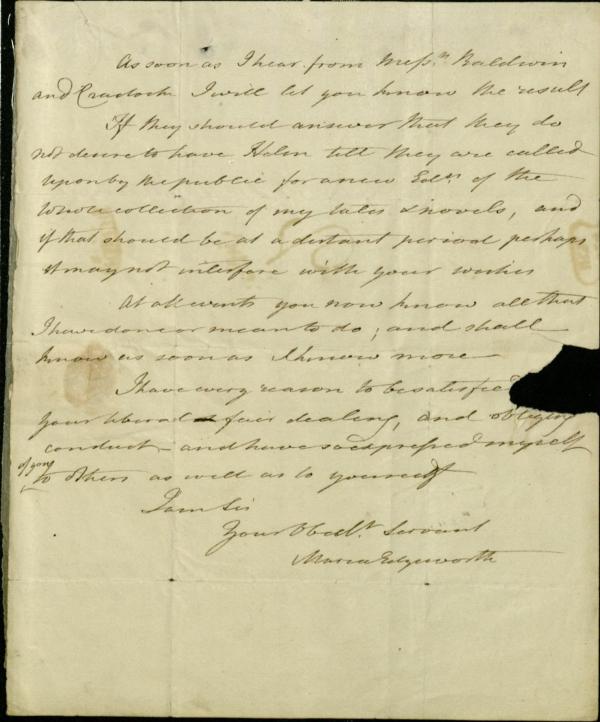 As soon as I hear from Mess.rs Baldwin
and Cradock I will let you know the result
If they should answer that they do
not desire to have Helen till they are called
upon by the public for a new Edn of the
whole collection of my tales & novels, and
if that should be at a distant period perhaps
it may not interfere with your wishes
At all events you now know all that
I have done or mean to do; and shall
know as soon as I know more
I have every reason to be satisfied
your liberal & fair dealing, and obliging
conduct – and have so expressed myself
of you
to others as well as to yourself
I am Sir
Your Obedt. Servant
Maria Edgeworth